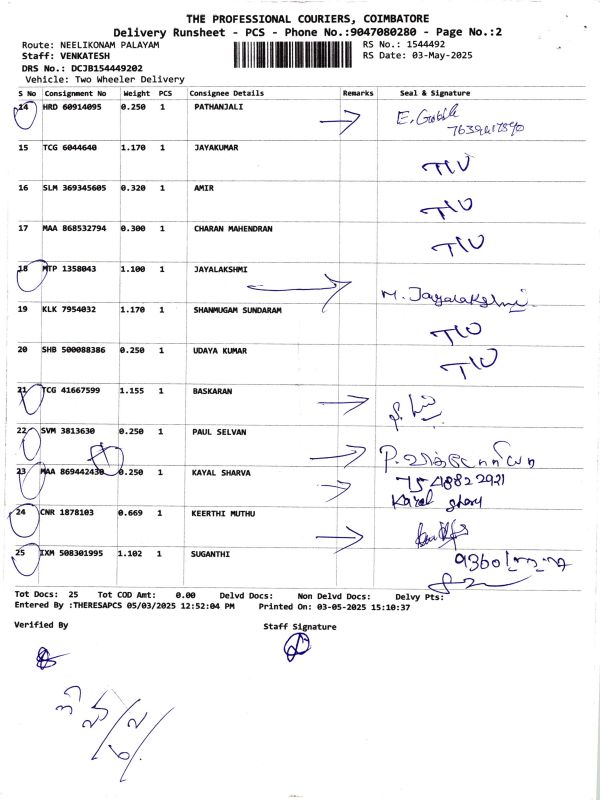 THE PROFESSIONAL COURIERS, COIMBATORE
Delivery Runsheet - PCS - Phone No.:9047080280 - Page No.:2
Route: NEELIKONAM PALAYAM RS No.: 1544492
Staff: VENKATESH RS Date: 03-May-2025
DRS No.: DCJB154449202
Vehicle: Two Wheeler Delivery
S No Consignment No Weight PCS Consignee Details Remarks Seal & Signature
14 HRD 60914095 0.250 1 PATHANJALI
15 TCG 6044640 1.170 1 JAYAKUMAR
16 SLM 369345605 0.320 1 AMIR
17 MAA 868532794 0.300 1 CHARAN MAHENDRAN
18 MTP 1358043 1.100 1 JAYALAKSHMI
M. Jayalakshmi
19 KLK 7954032 1.170 1 SHANMUGAM SUNDARAM
20 SHB 500088386 0.250 1 UDAYA KUMAR
21 TCG 41667599 1.155 1 BASKARAN
22 SVM 3813630 0.250 1 PAUL SELVAN
23 MAA 869442430 0.250 1 KAYAL SHARVA
7548822921
24 CNR 1878103 0.669 1 KEERTHI MUTHU
25 IXM 508301995 1.102 1 SUGANTHI
Tot Docs: 25 Tot COD Amt: 0.00 Delvd Docs: Non Delvd Docs: Delvy Pts:
Entered By :THERESAPCS 05/03/2025 12:52:04 PM Printed On: 03-05-2025 15:10:37
Verified By Staff Signature